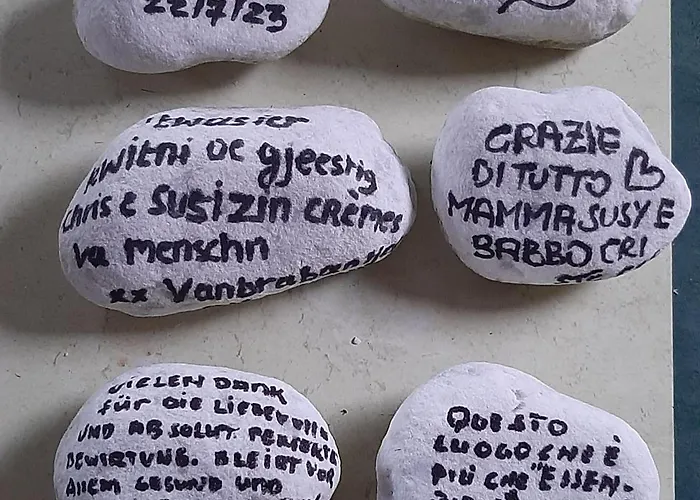 22/7/23
'twaster
kwitni oe gjeestig
Chris e SUSIZIN CRÈMES
va menschn
xx Vanbraban
GRAZIE
DI TUTTO ♡
MAMMA SUSY E
BABBO CRI
VIELEN DANK
FÜR DIE LIEBEVOLLE
UND ABSOLUT PERFEKTE
BEWIRTUNG. BLEIBT VOR
ALLEM GESUND UND
QUESTO
LUOGO CHE È
PIÙ CHE "ESSEN-